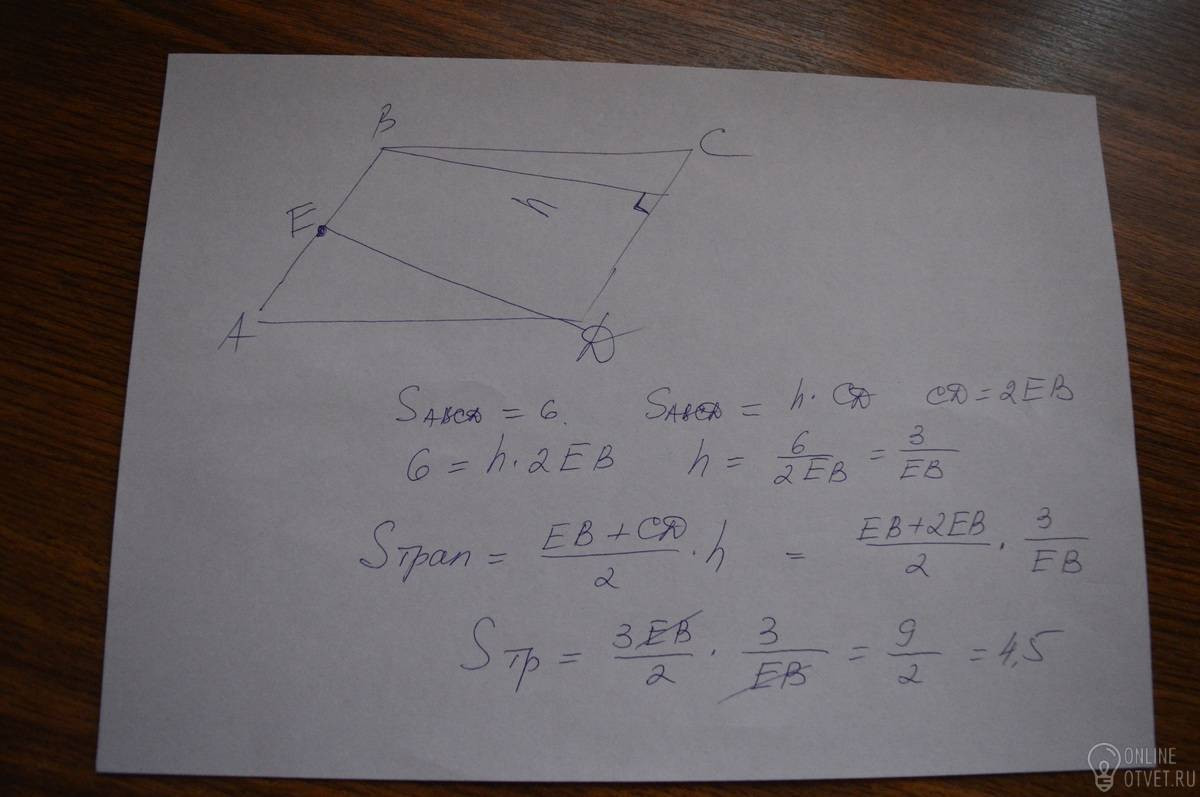 B
C
E
h
A
D
S_ABCD = 6. S_ABCD = h · CD CD = 2EB
6 = h · 2EB h = 6/2EB = 3/EB
S_трап = (EB + CD)/2 · h = (EB + 2EB)/2 · 3/EB
S_тр = 3EB/2 · 3/EB = 9/2 = 4,5
ONLINE
OTVET.RU